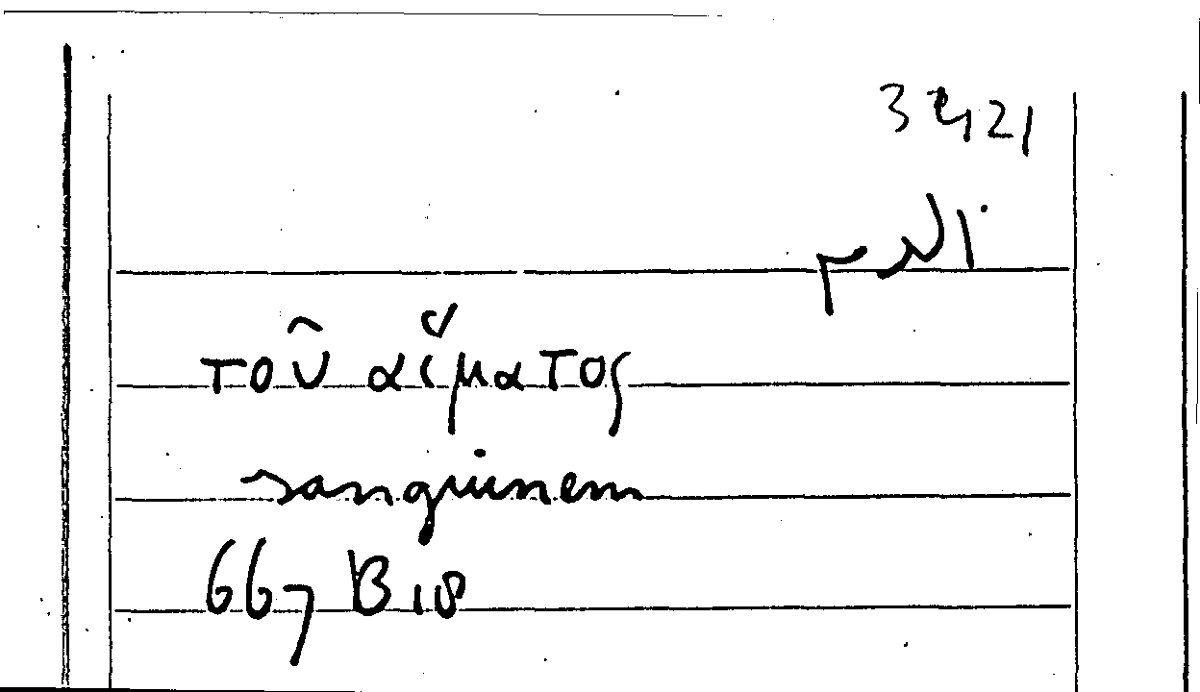 الدم
τοῦ αἵματος
sanguinem
667 B 18